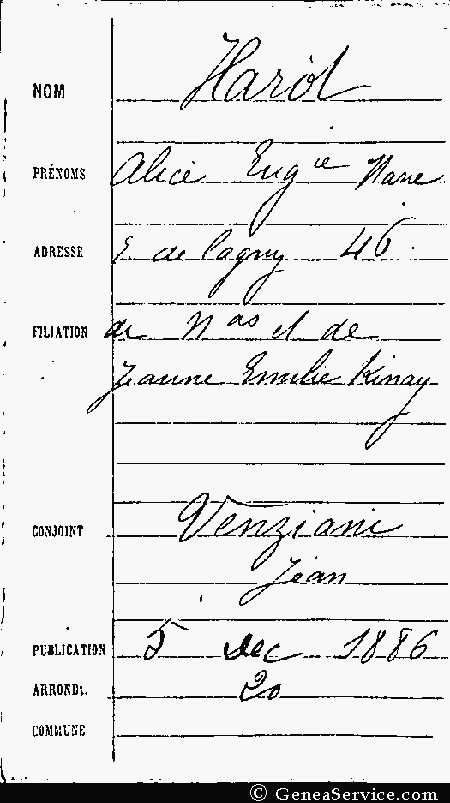 NOM Harol
PRÉNOMS Alice Eugie Marie
ADRESSE de Lagny 46
FILIATION de Nas et de
Jeanne Emilie Kinay
CONJOINT Venziani
Jean
PUBLICATION 5 Dec 1886
ARRONDt. 20
COMMUNE
© GeneaService.com